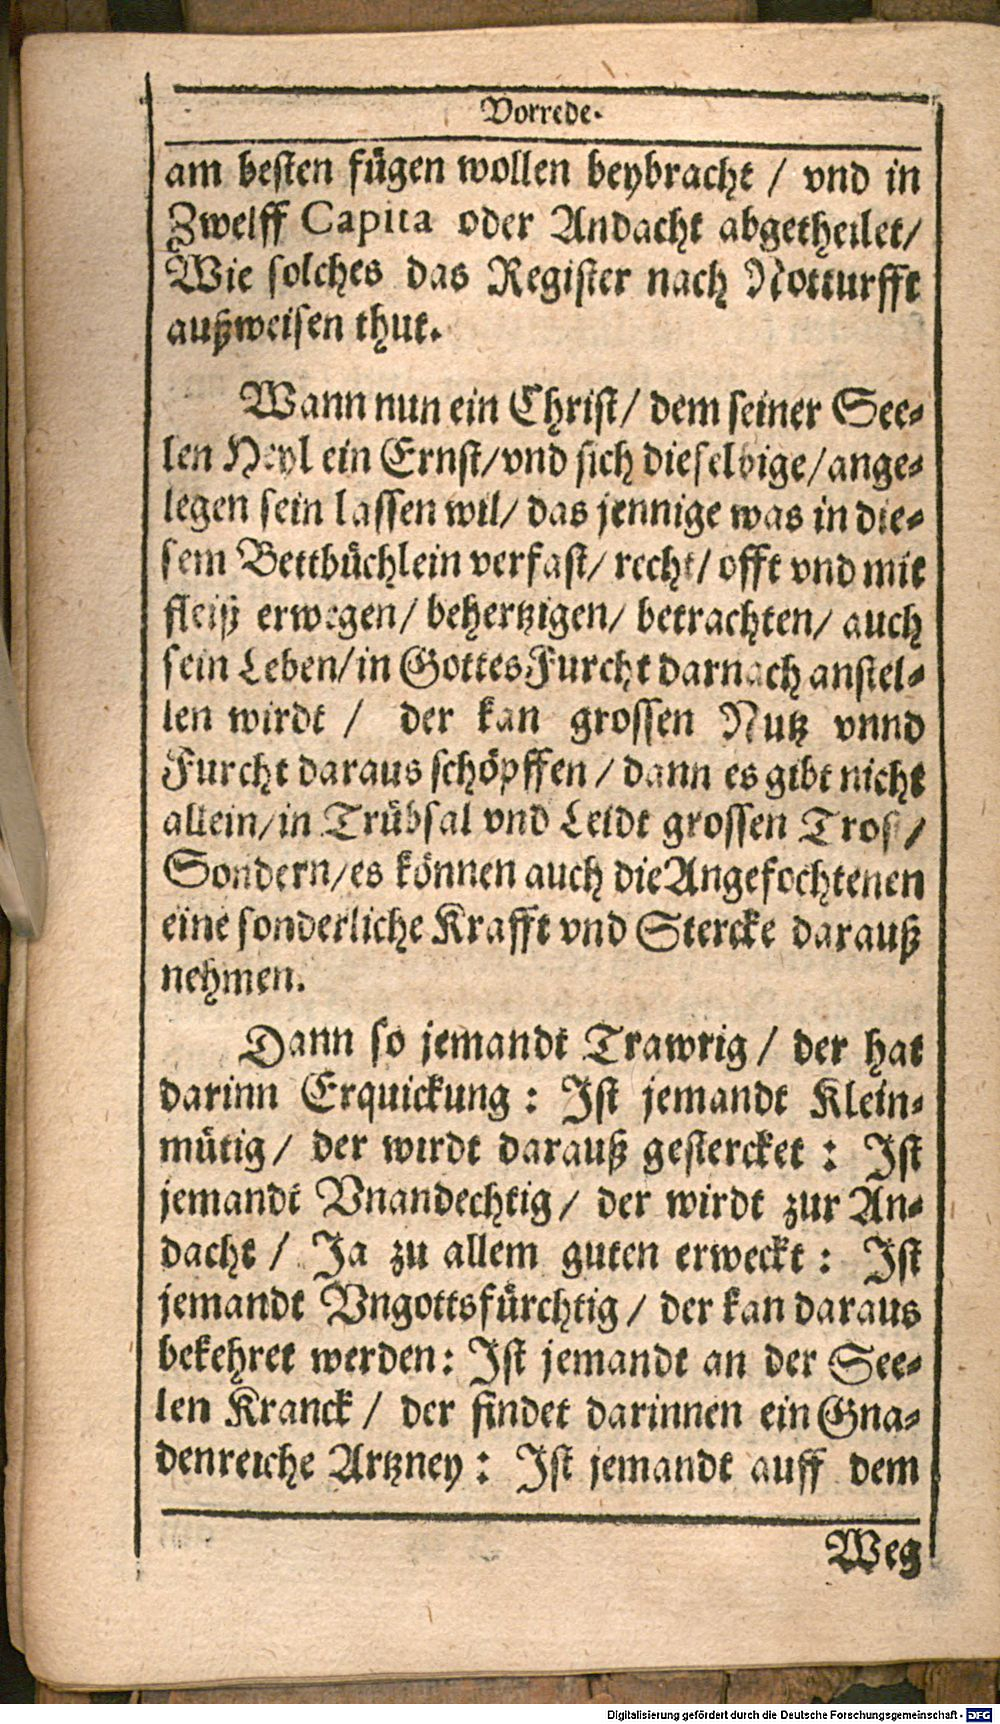 Vorrede.
am besten fügen wollen beybracht / vnd in
Zwelff Capita oder Andacht abgetheilet/
Wie solches das Register nach Notturfft
außweisen thut.
Wann nun ein Christ/ dem seiner See-
len Heyl ein Ernst/vnd sich dieselbige/ange-
legen sein lassen wil/ das jennige was in die-
sem Bettbüchlein verfast/ recht/ offt vnd mit
fleiß erwegen/ behertzigen/ betrachten/ auch
sein Leben/in Gottes Furcht darnach anstel-
len wirdt / der kan grossen Nutz vnnd
Furcht daraus schöpffen / dann es gibt nicht
allein/in Trübsal vnd Leidt grossen Trost/
Sondern/es können auch die Angefochtenen
eine sonderliche Krafft vnd Stercke darauß
nehmen.
Dann so jemandt Trawrig / der hat
darinn Erquickung : Ist jemandt Klein-
mütig / der wirdt darauß gestercket : Ist
jemandt Vnandechtig / der wirdt zur An-
dacht / Ja zu allem guten erweckt : Ist
jemandt Vngottsfürchtig / der kan daraus
bekehret werden: Ist jemandt an der See-
len Kranck / der findet darinnen ein Gna-
denreiche Artzney : Ist jemandt auff dem
Weg
Digitalisierung gefördert durch die Deutsche Forschungsgemeinschaft - DFG